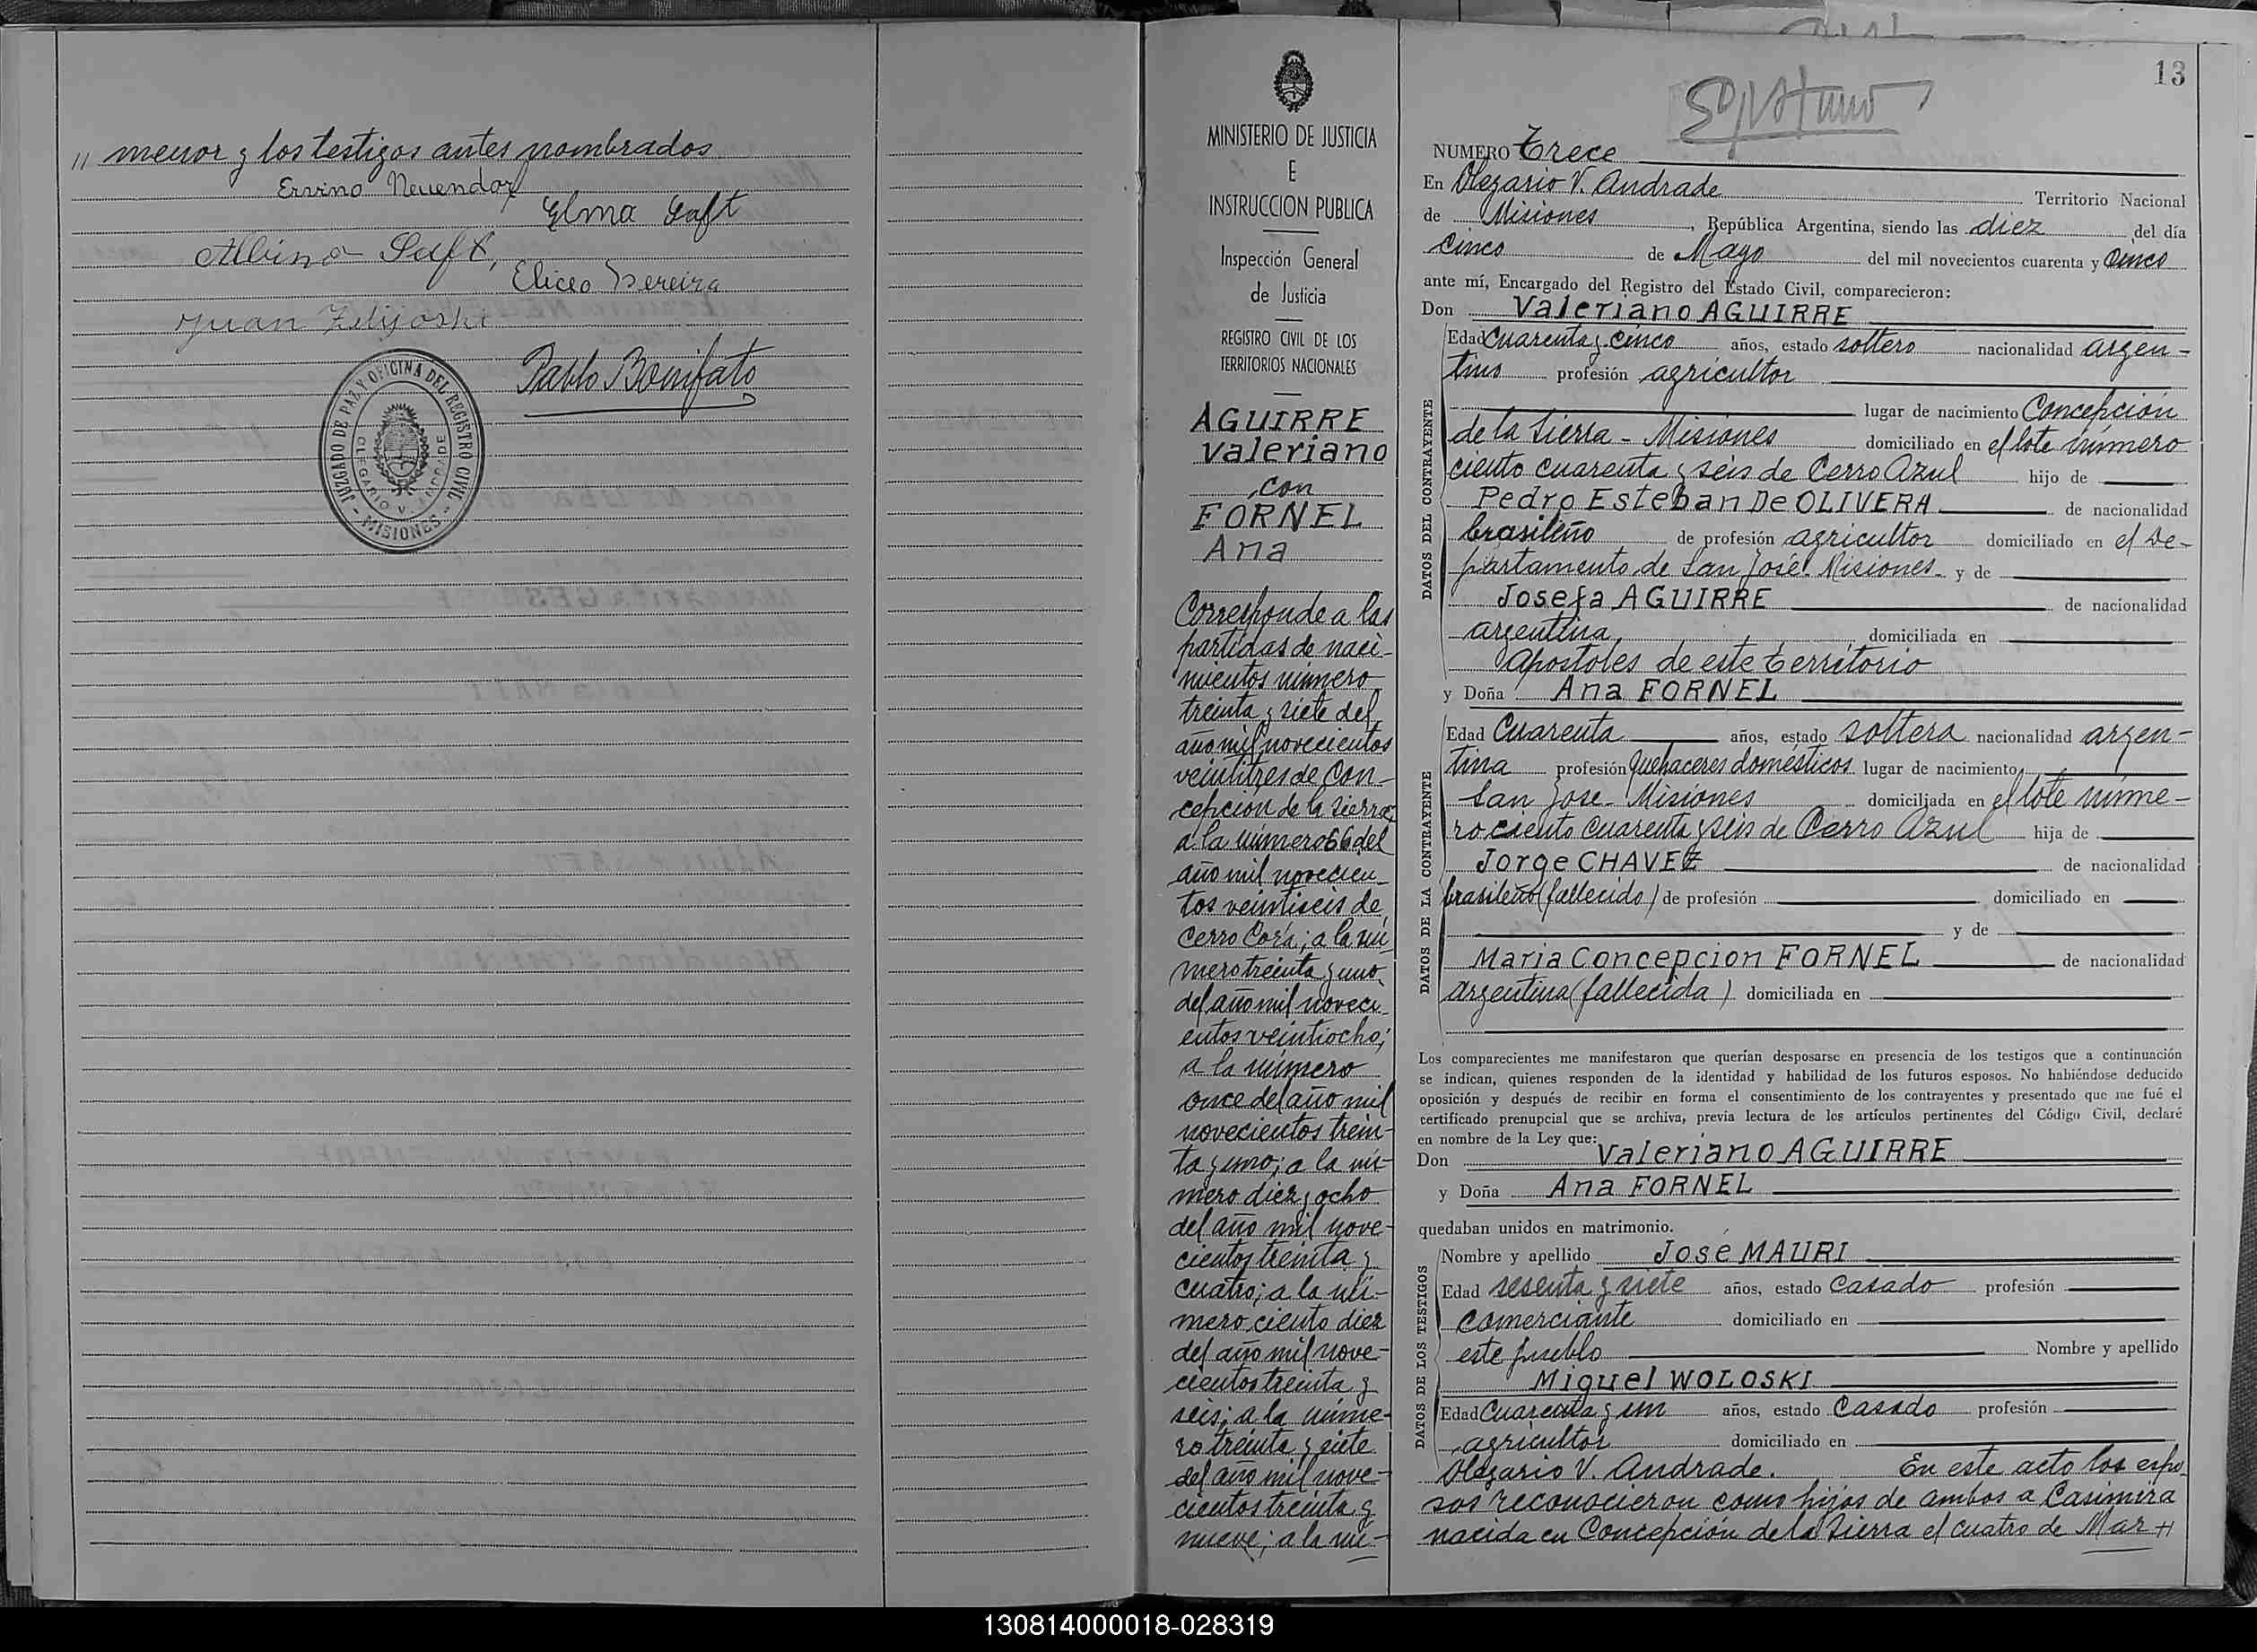 " menor y los testigos antes nombrados
Ervino Neuendorf
Elma Saft
Albino Saft,
Eliceo Pereira
Juan
Pablo Bonifato
JUZGADO DE PAZ Y OFICINA DEL REGISTRO CIVIL
OLEGARIO V. ANDRADE
- MISIONES -
MINISTERIO DE JUSTICIA
E
INSTRUCCION PUBLICA
Inspección General
de Justicia
REGISTRO CIVIL DE LOS
TERRITORIOS NACIONALES
AGUIRRE
Valeriano
con
FORNEL
Ana
Corresponde a las
partidas de naci-
mientos número
treinta y siete del
año mil novecientos
veintitres de Con-
cepción de la Sierra;
a la número 66 del
año mil novecien-
tos veintiseis de
Cerro Corá; a la nú-
mero treinta y uno
del año mil noveci-
entos veintiocho;
a la número
once del año mil
novecientos trein-
ta y uno; a la nú-
mero diez y ocho
del año mil nove-
cientos treinta y
cuatro; a la nú-
mero ciento diez
del año mil nove-
cientos treinta y
seis; a la núme-
ro treinta y siete
del año mil nove-
cientos treinta y
nueve; a la nú-
13
NUMERO Trece
En Olegario V. Andrade Territorio Nacional
de Misiones, República Argentina, siendo las diez del día
cinco de Mayo del mil novecientos cuarenta y cinco
ante mí, Encargado del Registro del Estado Civil, comparecieron:
Don Valeriano AGUIRRE
DATOS DEL CONTRAYENTE
Edad Cuarenta y cinco años, estado soltero nacionalidad argen-
tino profesión agricultor
lugar de nacimiento Concepción
de la Sierra - Misiones domiciliado en el lote número
ciento cuarenta y seis de Cerro Azul hijo de
Pedro Esteban De OLIVERA de nacionalidad
brasileño de profesión agricultor domiciliado en el De-
partamento de San José. Misiones y de
Josefa AGUIRRE de nacionalidad
argentina, domiciliada en
Apostoles de este territorio
y Doña Ana FORNEL
DATOS DE LA CONTRAYENTE
Edad Cuarenta años, estado soltera nacionalidad argen-
tina profesión quehaceres domésticos lugar de nacimiento
San Jose - Misiones domiciliada en el lote núme-
ro ciento cuarenta y seis de Cerro Azul hija de
Jorge CHAVEZ de nacionalidad
brasileño (fallecido) de profesión domiciliado en
y de
Maria Concepcion FORNEL de nacionalidad
argentina (fallecida) domiciliada en
Los comparecientes me manifestaron que querían desposarse en presencia de los testigos que a continuación
se indican, quienes responden de la identidad y habilidad de los futuros esposos. No habiéndose deducido
oposición y después de recibir en forma el consentimiento de los contrayentes y presentado que me fué el
certificado prenupcial que se archiva, previa lectura de los artículos pertinentes del Código Civil, declaré
en nombre de la Ley que:
Don Valeriano AGUIRRE
y Doña Ana FORNEL
quedaban unidos en matrimonio.
DATOS DE LOS TESTIGOS
Nombre y apellido José MAURI
Edad sesenta y siete años, estado Casado profesión
comerciante domiciliado en
este pueblo Nombre y apellido
Miguel WOLOSKI
Edad Cuarenta y un años, estado Casado profesión
agricultor domiciliado en
Olegario V. Andrade. En este acto los espo
sos reconocieron como hijos de ambos a Casimira
nacida en Concepción de la Sierra el cuatro de Mar "
130814000018-028319